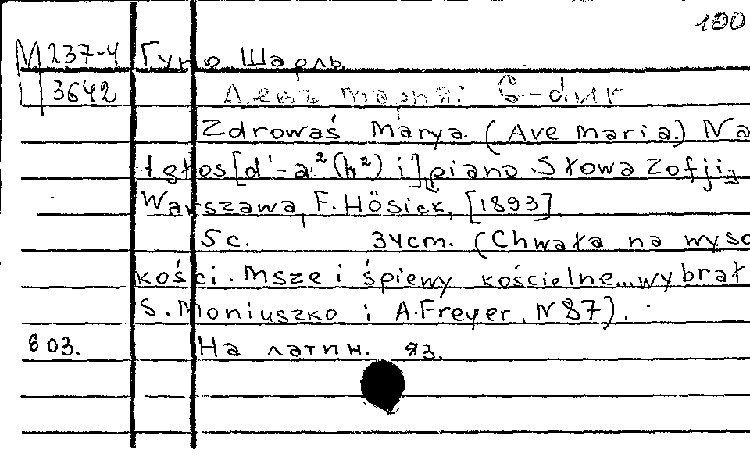 100
М 237-4 Гуно Шарль
Ц 3642 Аве Мария: G-dur
Zdrowaś Marya (Ave maria) Na
1 głos [d¹-a²(h²) i] piano. Słowa Zofji
Warszawa, F. Hösick, [1893]
5 c. 34 cm. (Chwała na wyso
kości. Msze i śpiewy kościelne... wybrał
S. Moniuszko i A. Freyer, N 87).
603. На латин. яз.